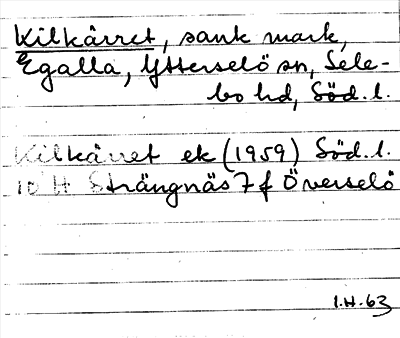 Kilkärret, sank mark,
Egalla, Ytterselö sn, Sele-
bo hd, Söd. l.
Kilkärret ek (1959) Söd. l.
10 H Strängnäs 7 f Överselö
I.H. 63